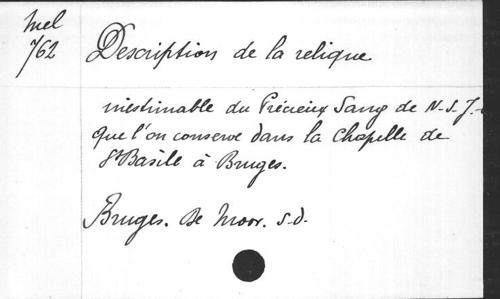 Mel
762
Description de la relique
inestimable du Précieux Sang de N.S.J.
que l'on conserve dans la Chapelle de
St Basile à Bruges.
Bruges. De Moor. s.d.